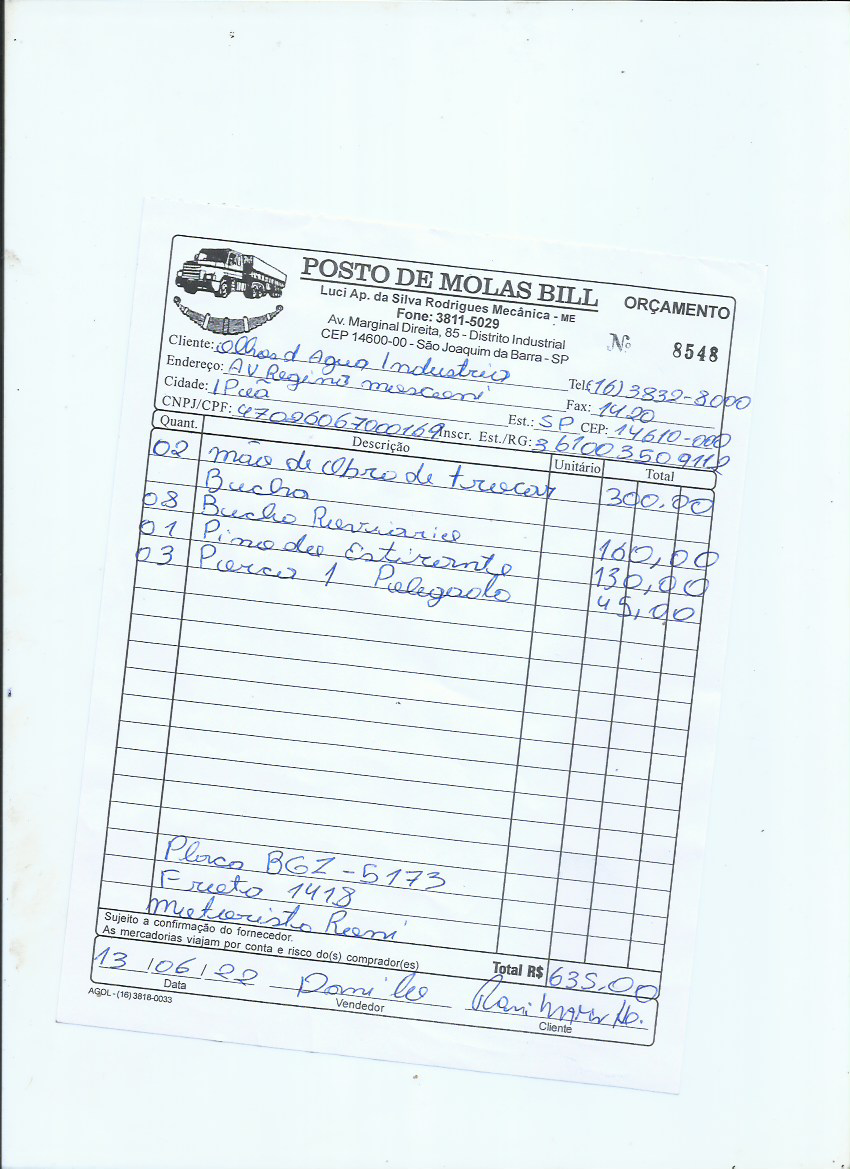 POSTO DE MOLAS BILL
ORÇAMENTO
Luci Ap. da Silva Rodrigues Mecânica - ME
Fone: 3811-5029
Av. Marginal Direita, 85 - Distrito Industrial
CEP 14600-00 - São Joaquim da Barra - SP
Nº 8548
Cliente: Olhos d Agua Industria
Tel: (16) 3832-8000
Endereço: AV Regina
Fax: 1420
Cidade: IPuã Est.: SP CEP: 14610-000
CNPJ/CPF: 47026067000169 Inscr. Est./RG: 361003509112
Quant. Descrição Unitário Total
02 mão de obra de trocar 300,00
Bucha
08 Bucha 160,00
01 Pino de Estirante 130,00
03 Porca 1 Polegada 45,00
Placa BGZ-5173
Frota 1418
motorista Rani
Sujeito a confirmação do fornecedor.
As mercadorias viajam por conta e risco do(s) comprador(es)
Total R$ 635,00
13/06/22
Data Vendedor Cliente
AGDL - (16) 3818-0033